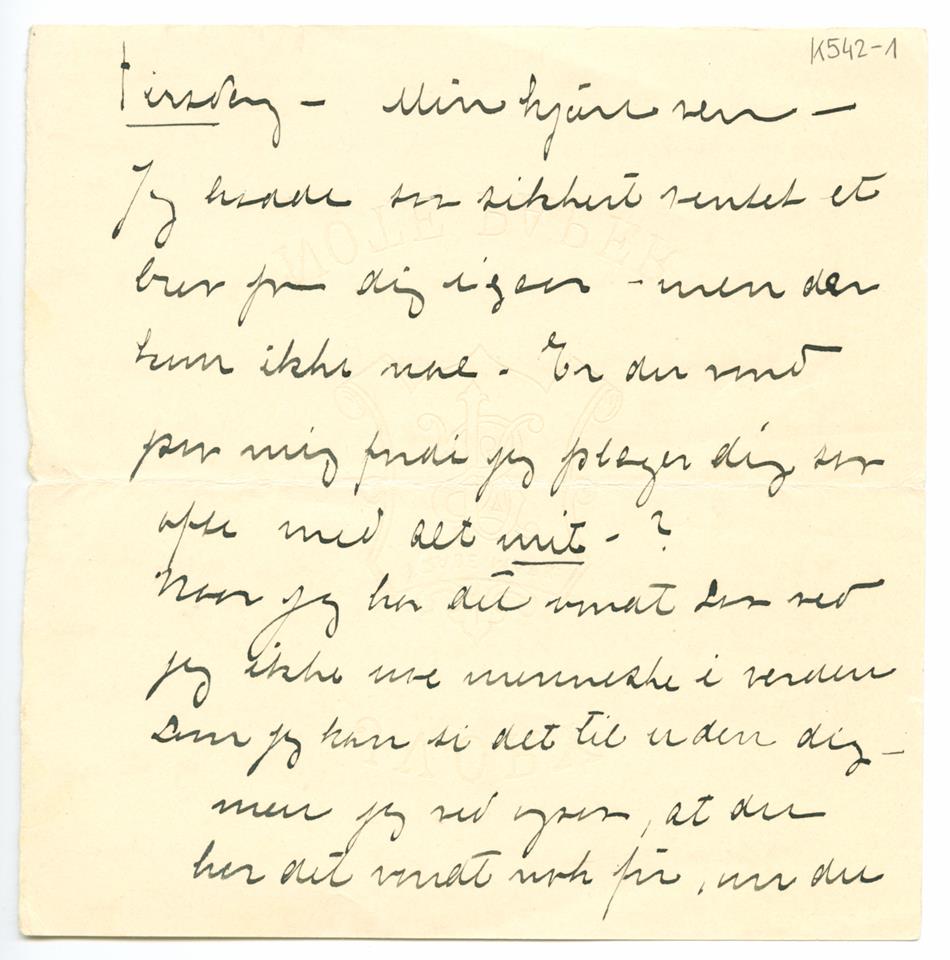 K542-1
tirsdag - Min kjære ven -
Jeg hadde saa sikkert ventet et
brev fra dig igaar - men der
kom ikke noe. Er du vond
paa mig fordi jeg plager dig saa
ofte med alt mit - ?
Naar jeg har det vondt saa ved
jeg ikke noe menneske i verden
som jeg kan si det til uden dig -
men jeg ved ogsaa, at du
har det vondt nok før, om du
NOTE PAPER